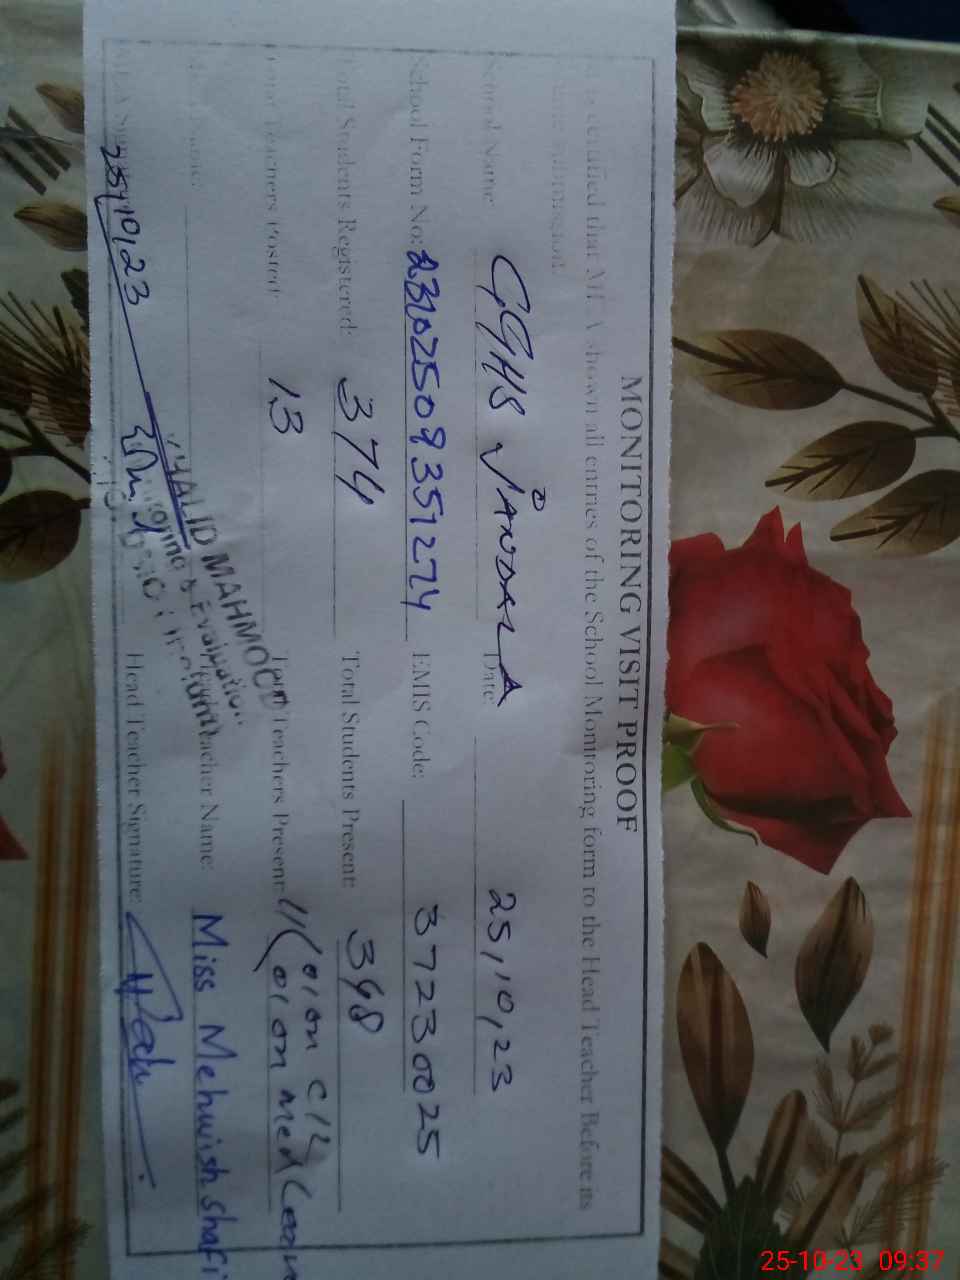 MONITORING VISIT PROOF
certified that MEA shown all entries of the School Monitoring form to the Head Teacher Before its
School Name: GGHS JANDALA Date: 25,10,23
School Form No: 23102508351274 EMIS Code: 37230025
Total Students Registered: 374 Total Students Present: 348
Teachers Posted: 13 Teachers Present: 11 (01 on C/L
01 on med Leav
KHALID MAHMOOD
Monitoring & Evaluation
Teacher Name: Miss Mehwish Shafi
25,10,23 Head Teacher Signature:
25-10-23 09:37